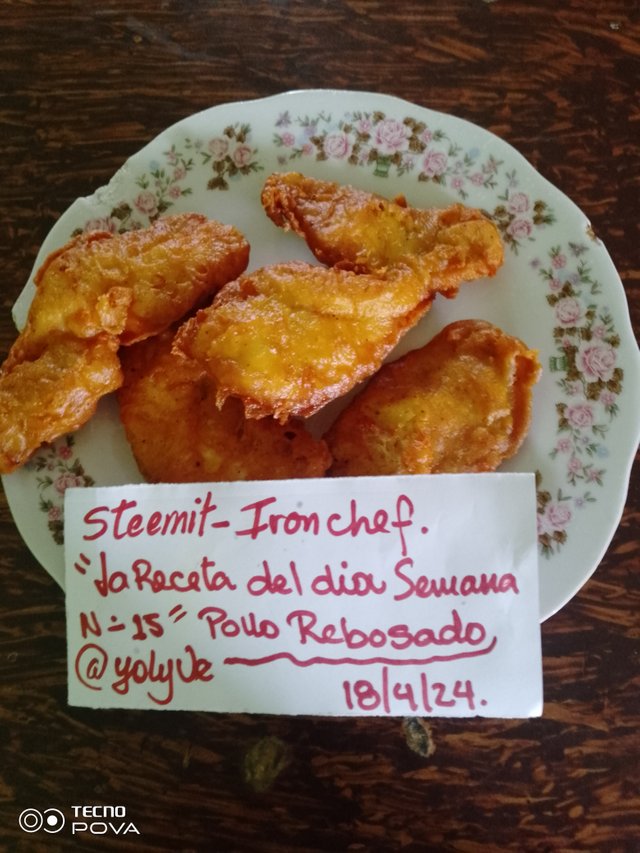 Steemit-Iron chef.
"La Receta del dia Semana
N-15" Pollo Rebosado
@yolyve
18/4/24.
TECNO
POVA